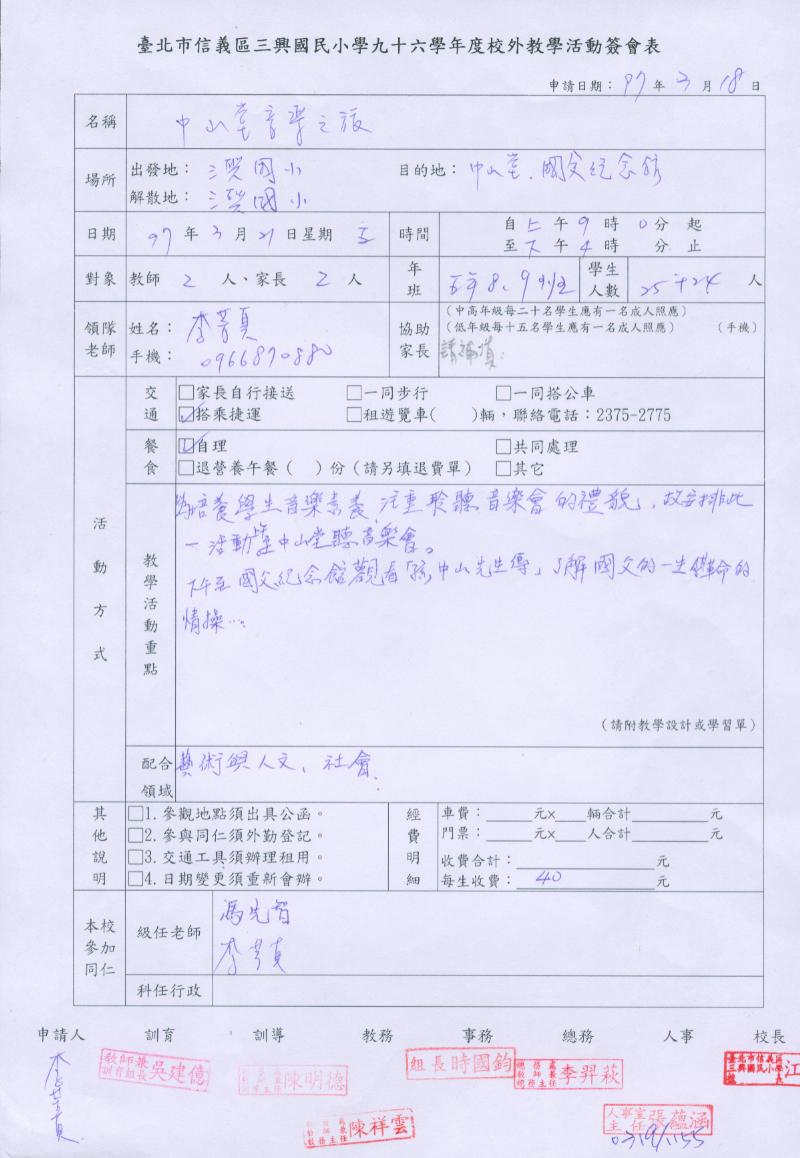 臺北市信義區三興國民小學九十六學年度校外教學活動簽會表
申請日期：97年3月18日
名稱 中山堂音樂之旅
場所 出發地：三興國小 目的地：中山堂、國父紀念館
解散地：三興國小
日期 97年3月21日星期五 時間 自上午9時0分起
至下午4時 分止
對象 教師2人、家長2人 年班 五年8、9班 學生人數 25+24人
領隊老師 姓名：李芳真 協助家長 (中高年級每二十名學生應有一名成人照應)
(低年級每十五名學生應有一名成人照應) (手機)
手機：0966870880 請補填：
活動方式
交通 □家長自行接送 □一同步行 □一同搭公車
☑搭乘捷運 □租遊覽車( )輛，聯絡電話：2375-2775
餐食 ☑自理 □共同處理
□退營養午餐( )份(請另填退費單) □其它
教學活動重點
為培養學生音樂素養，注重聆聽音樂會的禮貌，故安排此
一活動至中山堂聽音樂會。
下午至國父紀念館觀看「孫中山先生傳」了解國父的一生革命的
情操…
(請附教學設計或學習單)
配合領域 藝術與人文、社會
其他說明
□1.參觀地點須出具公函。
□2.參與同仁須外勤登記。
□3.交通工具須辦理租用。
□4.日期變更須重新會辦。
經費明細
車費：____元x__輛合計____元
門票：____元x__人合計____元
收費合計：____元
每生收費：40元
本校參加同仁 級任老師 馮先智
李芳真
科任行政
申請人 訓育 訓導 教務 事務 總務 人事 校長
李芳真
教師兼訓育組長 吳建億
陳明德
組長時國鈞
總務處教師兼總務主任 李羿萩
臺北市信義區三興國民小學校長 江
教務主任 陳祥雲
人事室主任 張蘊涵
0319/1155